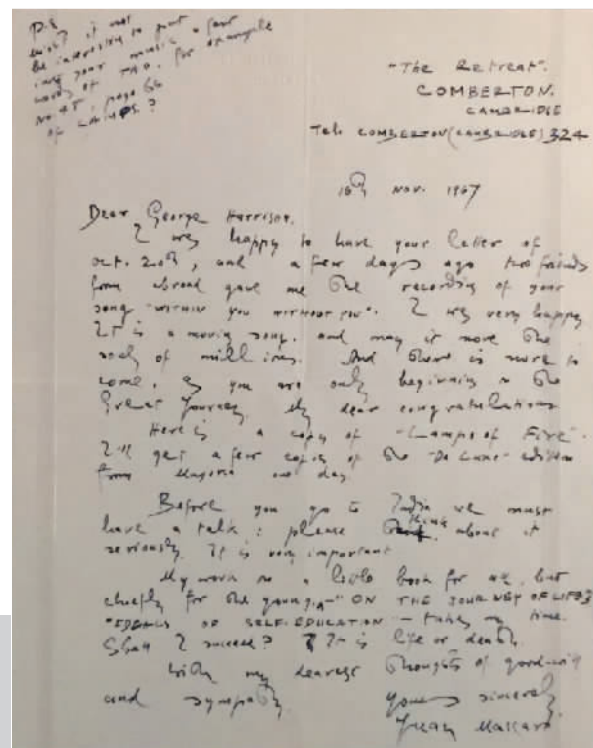 P.S
might it not
be interesting to put
into your music a few
words of TAO, for example
No 48, page 66
of LAMPS?
"The Retreat".
COMBERTON.
CAMBRIDGE
Tel: COMBERTON (CAMBRIDGE) 324
16th Nov. 1967
Dear George Harrison.
I was happy to have your letter of
Oct. 20th, and a few days ago two friends
from abroad gave me the recording of your
song "WITHIN YOU WITHOUT YOU". I was very happy
It is a moving song, and may it move the
souls of millions. And there is more to
come, as you are only beginning on the
Great Journey. My dear congratulations
Here is a copy of "Lamps of Fire".
I'll get a few copies of the "De Luxe" edition
from one day
Before you go to India we must
have a talk: please think about it
seriously. It is very important
My work on a little book for me, but
chiefly for the young - "ON THE JOURNEY OF LIFE
IDEALS OF SELF-EDUCATION - takes my time.
Shall I succeed? It is life or death.
With my dearest thoughts of goodwill
and sympathy yours sincerely
Juan Mascaró